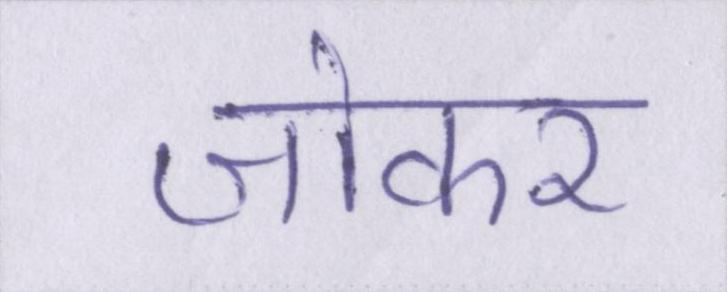 जोकर